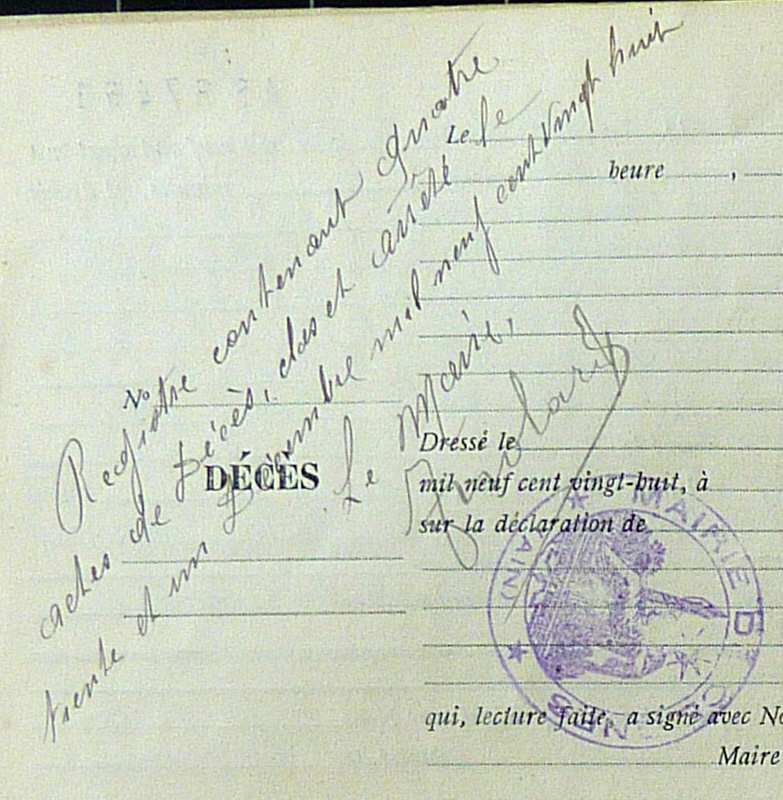 Registre contenant quatre
actes de Décès, clos et arrêté le
trente et un Décembre mil neuf cent vingt huit
Le Maire,
Le
heure ,
No
DÉCÈS
Dressé le
mil neuf cent vingt-huit, à
sur la déclaration de
qui, lecture faite, a signé avec No
Maire
MAIRIE D
(AIN)